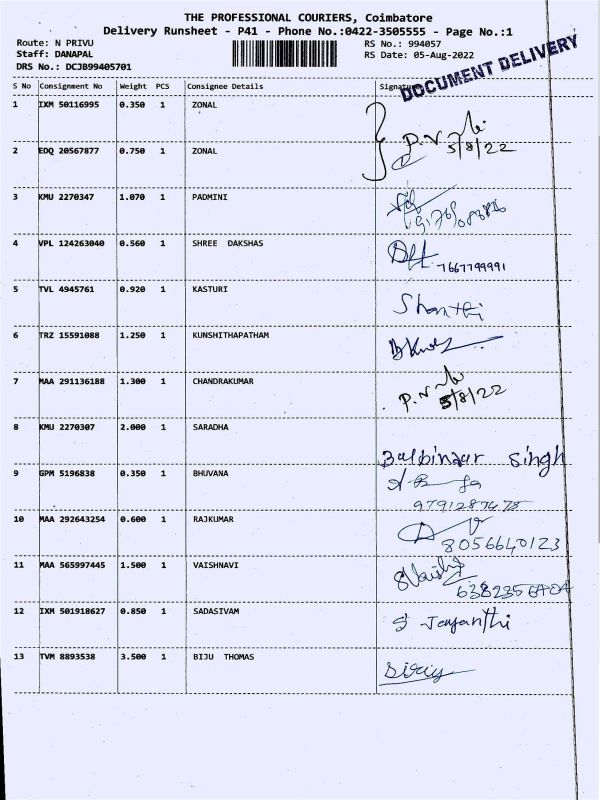 THE PROFESSIONAL COURIERS, Coimbatore
Delivery Runsheet - P41 - Phone No.:0422-3505555 - Page No.:1
Route: N PRIVU RS No.: 994057
Staff: DANAPAL RS Date: 05-Aug-2022
DRS No.: DCJB99405701
DOCUMENT DELIVERY
S No Consignment No Weight PCS Consignee Details Signature
1 IXM 50116995 0.350 1 ZONAL
5/8/22
2 EDQ 20567877 0.750 1 ZONAL
3 KMU 2270347 1.070 1 PADMINI
4 VPL 124263040 0.560 1 SHREE DAKSHAS
7667799991
5 TVL 4945761 0.920 1 KASTURI
Shanthi
6 TRZ 15591088 1.250 1 KUNSHITHAPATHAM
7 MAA 291136188 1.300 1 CHANDRAKUMAR
5/8/22
8 KMU 2270307 2.000 1 SARADHA
Balbindar Singh
9 GPM 5196838 0.350 1 BHUVANA
10 MAA 292643254 0.600 1 RAJKUMAR
8056640123
11 MAA 565997445 1.500 1 VAISHNAVI
12 IXM 501918627 0.850 1 SADASIVAM
S Jayanthi
13 TVM 8893538 3.500 1 BIJU THOMAS